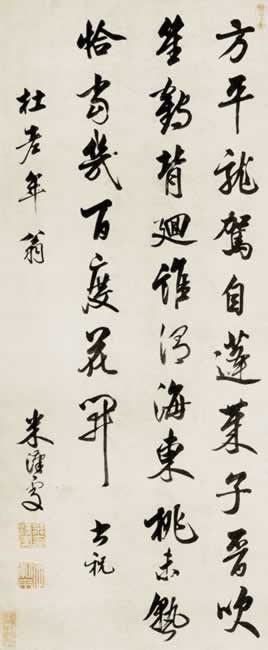 方平龍駕自蓬萊子晉吹
笙鶴背迴誰謂海東桃未熟
恰當幾百度花開 書祝
杜老年翁
米漢雯